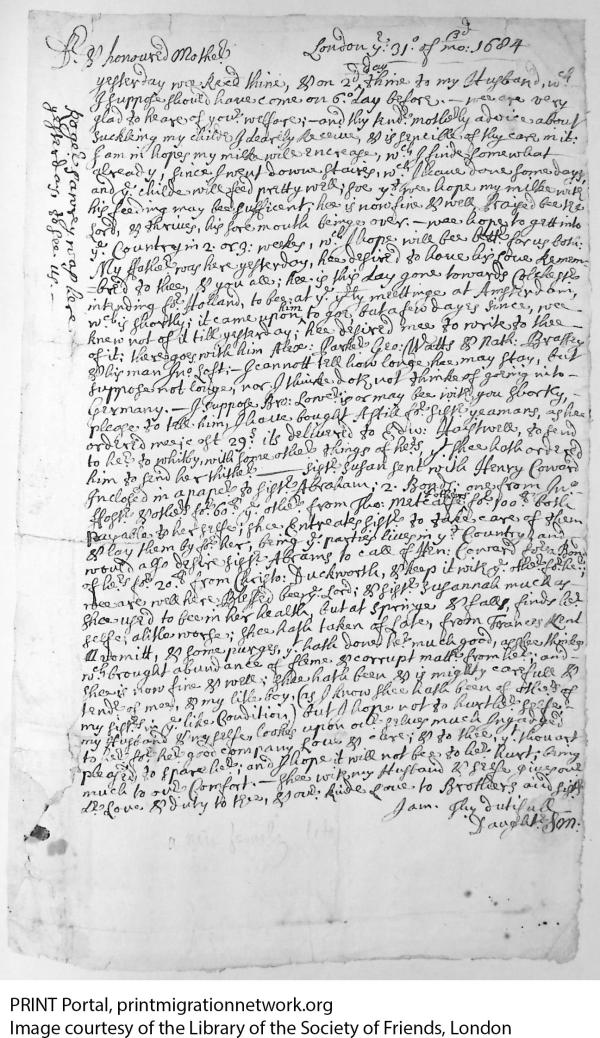 Dr. & honoured Mother London ye. 31o. of 3d mo: 1684
yesterday wee Reced thine, & on 2d day thine to my Husband, wch
I suppose should have come on 6o. day before. – wee are very
glad to heare of your welfare; – and thy kind motherly advice about
suckling my childe I dearly Receive, & is sencible of thy care in it:
I am in hopes my milke will increase, wch I finde somewhat
already, since I went downe staires, wch I have done some days,
and ye. childe will feed pretty well; soe yt. wee hope my milke with
his feeding may bee sufficient; hee is now fine & well praised bee ye.
Lord, & thrives, his sore mouth beinge over. – wee hope to gett into
ye. Country in 2. or 3. weekes, wch I hope will bee better for us both:
My ffather was here yesterday, hee desired to have his love Remem-
-bred to thee, & you all; hee is this day gone towards Colchester
intending for Holland, to bee at ye. yrly meetinge at Amsterdam,
wch is shortly; it came upon him to goe, but a few dayes since, wee
knew not of it till yesterday; hee desired mee to write to thee
of it: there goes with him Alex: Parker Geo: Watts & Nath: Brassey
& his man Jno. – I cannott tell how longe hee may stay, but
suppose not longe, nor I thinke doth not thinke of going into –
Germany. – I suppose Bro: Lower is or may bee with you shortly, –
please to tell him I have bought A still for sister yeamans, as hee
ordered mee; cost 29s. its delivered to Edw: Haistwell, to send
to her to Whitby, with some other things of hers yt. shee hath ordered
him to send her thither. – sister Susan sent with Henry Coward
Inclosed in a paper to sister Abraham; 2. Bonds; one from Jno.
& other for 60l. ye. other from Tho: Metcalfe & others for 100l. both
payable to her selfe; shee Entreates sister to take care of them
& lay them by for her, being ye. parties lives in ye. Country; and
would also desire sister Abrams to call of Hen: Coward for a Bond
of hers for 20l. from Christo: Duckworth, & keep it with ye. others of hers:
wee are well here Blessed bee ye. Lord; & sister Susannah much as
shee used to bee in her health, but at springe & fall, finds her
selfe a litle worse; shee hath taken of late, from Frances Kent
A vomitt, & some purges, yt. hath done her much good, as shee thinkes
wch brought abundance of fleme & corrupt matter from her; and
shee is now fine & well; shee hath been & is mighty carefull &
tender of mee, & my litle boy, (as I know shee hath been of others of
my sisters in ye. like Condition) but I hope not to hurt her selfe:
my Husband & my selfe, lookes upon our selves much Ingaged
to her for her good company love & care; & to thee yt. thou art
pleased to spare her, and I hope it will not bee to her hurt; being
much to our Comfort. – Shee with my Husband & selfe gives our
Dr. Love & duty to thee, & our kinde Love to Brothers and sisters
I am. Thy dutifull
Daughter SM:
here
yesterday to see us –
PRINT Portal, printmigrationnetwork.org
Image courtesy of the Library of the Society of Friends, London